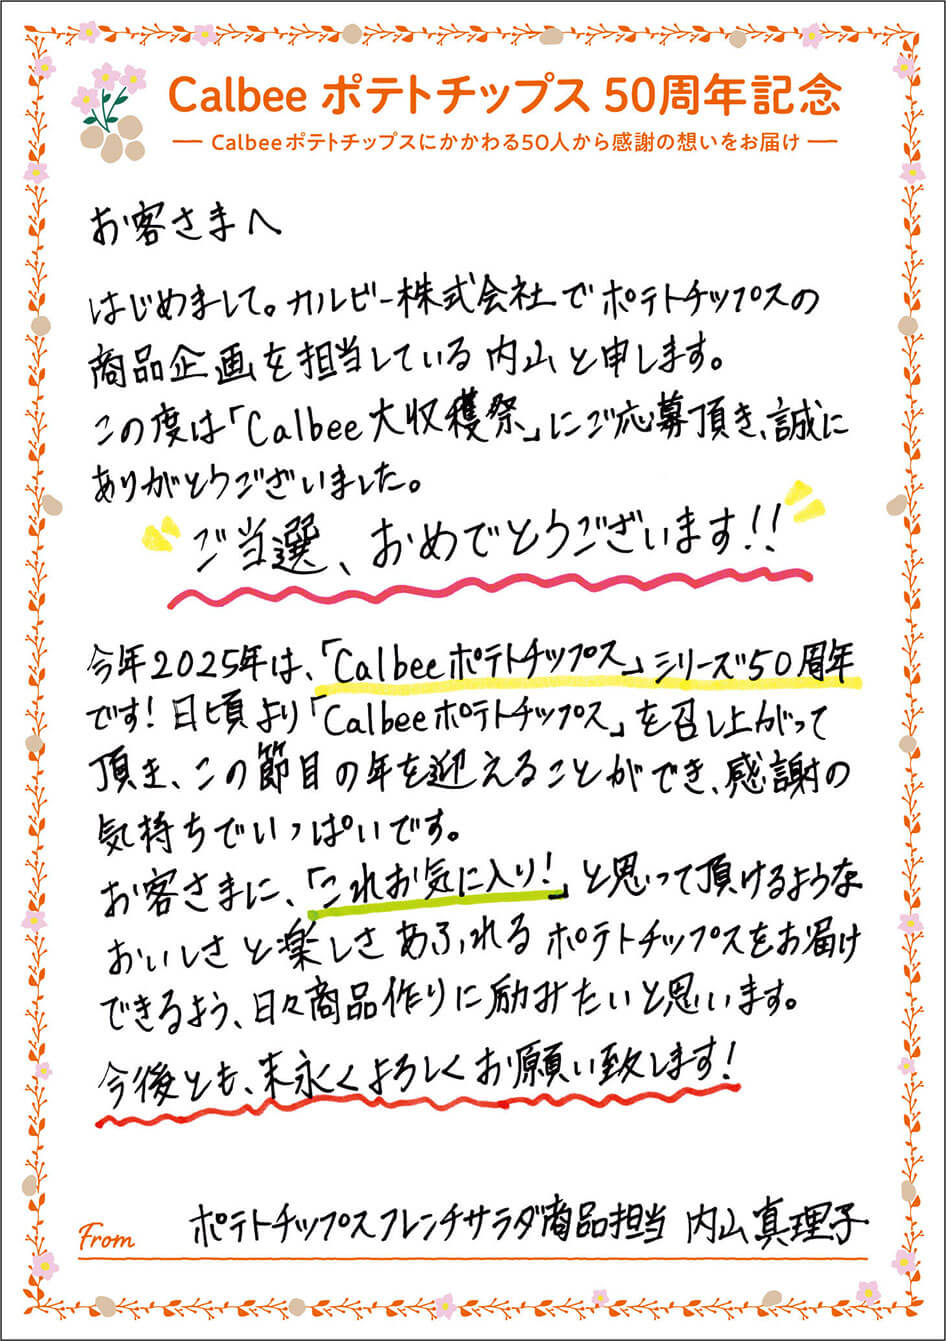 Calbee ポテトチップス 50周年記念
Calbeeポテトチップスにかかわる50人から感謝の想いをお届け
お客さまへ
はじめまして。カルビー株式会社でポテトチップスの
商品企画を担当している内山と申します。
この度は「Calbee大収穫祭」にご応募頂き、誠に
ありがとうございました。
ご当選、おめでとうございます!!
今年2025年は、「Calbeeポテトチップス」シリーズ50周年
です!日頃より「Calbeeポテトチップス」を召し上がって
頂き、この節目の年を迎えることができ、感謝の
気持ちでいっぱいです。
お客さまに、「これお気に入り!」と思って頂けるような
おいしさと楽しさあふれるポテトチップスをお届け
できるよう、日々商品作りに励みたいと思います。
今後とも、末永くよろしくお願い致します!
From ポテトチップスフレンチサラダ商品担当 内山真理子